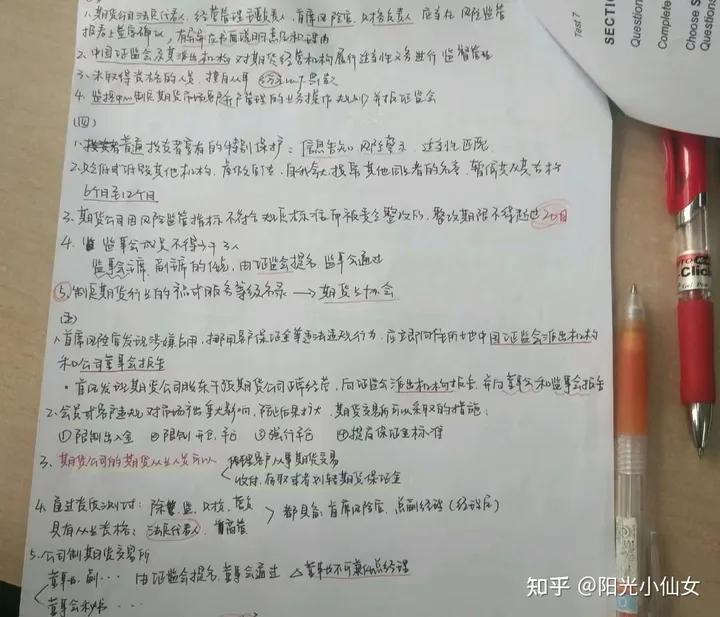 1.期货公司法定代表人,经营管理主要负责人,首席风险官,财务负责人 应当在 风险监管
报表上签字确认,有异议在书面说明意见和理由
2.中国证监会及其派出机构 对期货经营机构履行适当性义务进行 监督管理
3.未取得资格的人员,擅自从事
4. 制定期货市场客户管理的业务操作规则 并报证监会
(四)
1.普通投资者享有的特别保护:信息告知,风险警示,适当性匹配
2. 其他机构, 其他 的名义,暂停
6个月至12个月
3.期货公司因风险监管指标不符合规定标准而被责令整改的,整改期限不得超过20日
4.监事会成员不得少于3人
监事会主席、副主席的任免,由证监会提名,监事会通过
⑤.制定期货行业的 服务等级 → 期货业协会
(五)
1.首席风险官发现涉嫌占用,挪用客户保证金等违法违规行为,应立即向住所地中国证监会派出机构
和公司董事会报告
·首风发现期货公司股东干预期货公司正常经营,向证监会派出机构报告,并向董事会和监事会报告
2.会员或客户违规对市场产生重大影响,防止后果扩大,期货交易所可以采取的措施:
①限制出入金 ②限制开仓、平仓 ③强行平仓 ④提高保证金标准
3.期货公司的期货从业人员可以 代理客户从事期货交易
收付、存取或者划转期货保证金
4.通过资质测试:除 监、财务、 > 都具备 首席风险官、总副经理(经理层)
具有从业资格:法定代表人、
5.公司制期货交易所
董事长、副… 由证监会提名,董事会通过 △董事长不可兼任总经理
董事会秘书 …
Test 7
SECTI
Question
Complete
Choose S
Questions
Click
知乎 @阳光小仙女